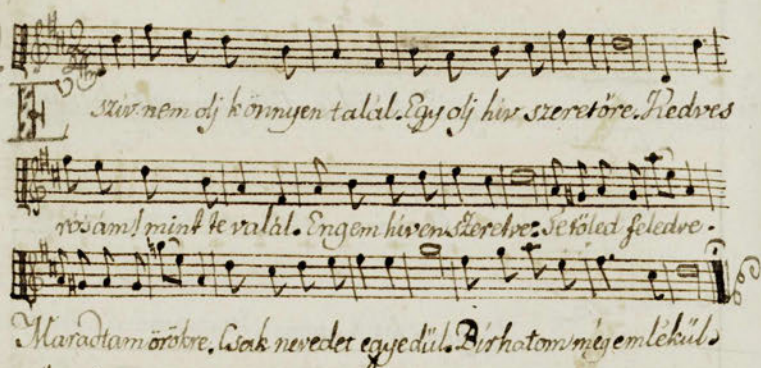 E sziv nem olj könnyen talál. Egy olj hiv szeretőre. Kedves
rosám! mint te valál. Engem hiven szeretve: Se tőled feledve.
Maradtam örökre. Csak nevedet egyedül. Birhatom még emlékül.